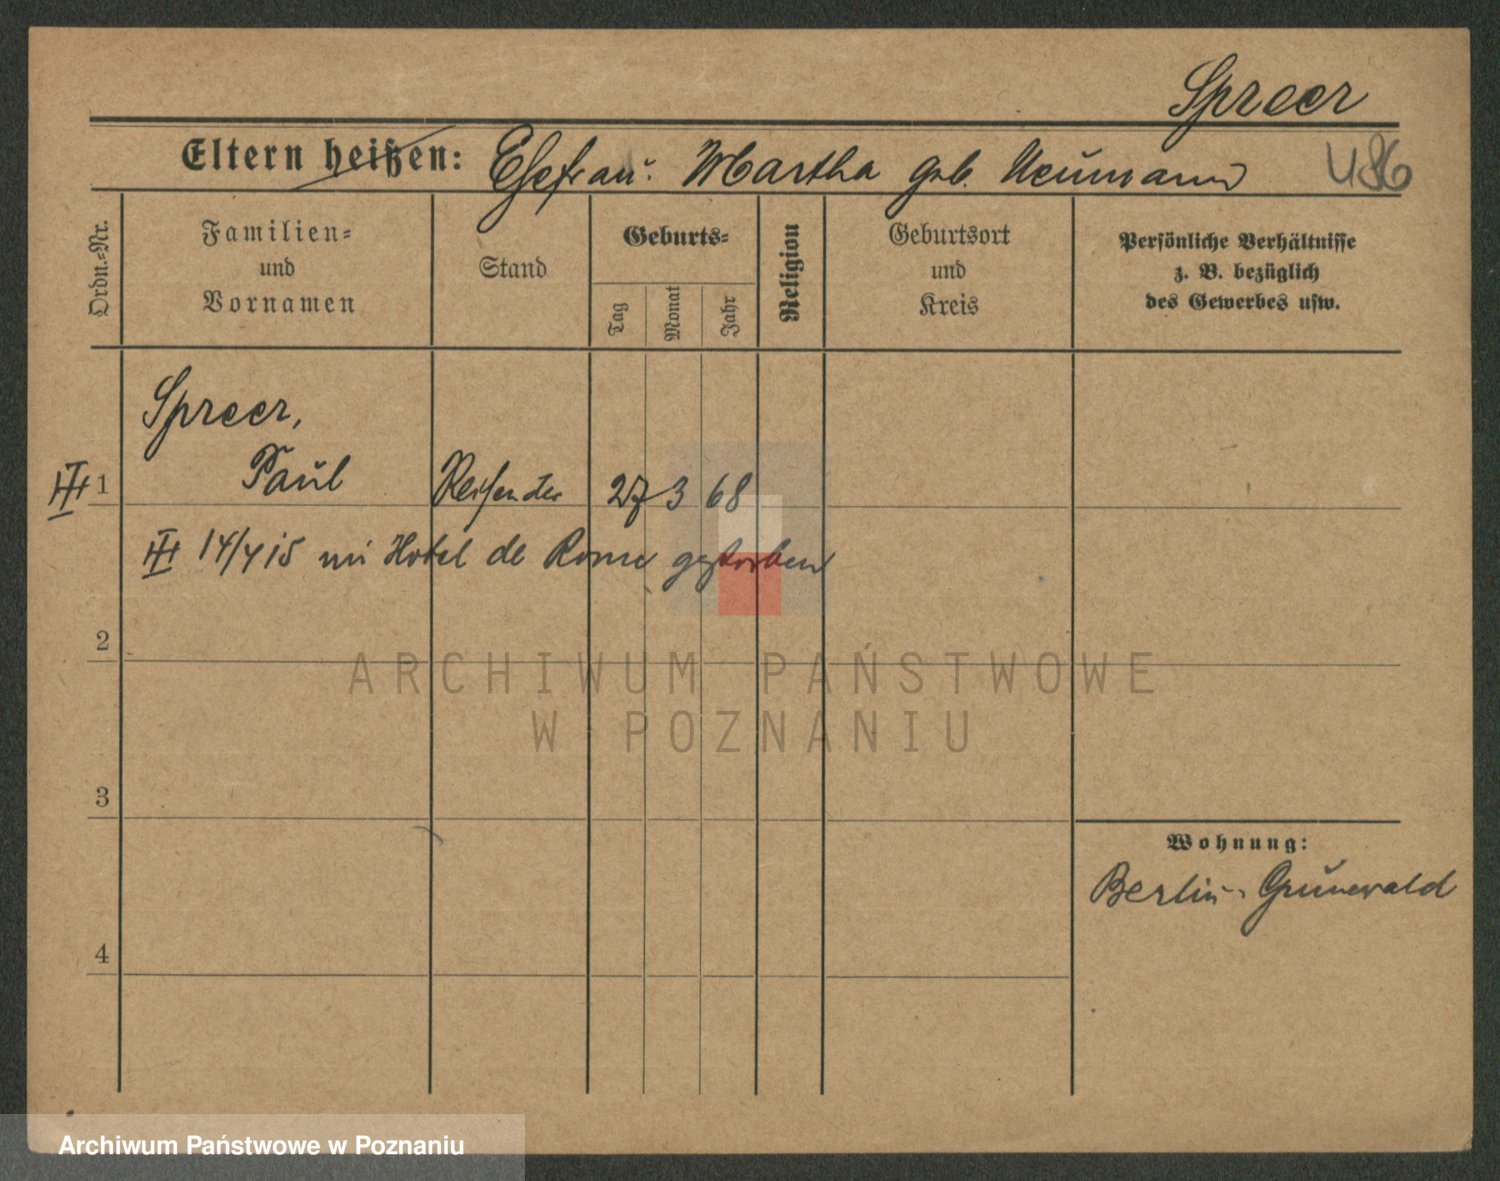 Spreer
Eltern heißen: Ehefrau: Martha geb. Neumann 486
Ordn.-Nr.
Familien-
und
Vornamen
Stand
Geburts-
Tag
Monat
Jahr
Religion
Geburtsort
und
Kreis
Persönliche Verhältnisse
z. B. bezüglich
des Gewerbes usw.
Spreer,
III 1 Paul Reisender 27 3 68
III 14/4 15 im Hotel de Rome gestorben
2
ARCHIWUM PAŃSTWOWE
W POZNANIU
3
Wohnung:
Berlin-Grunewald
4
Archiwum Państwowe w Poznaniu